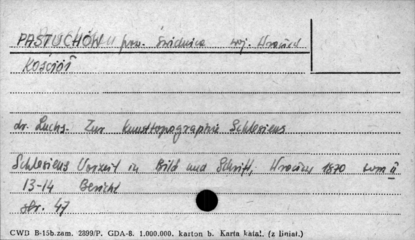 PASTUCHÓW pow. Świdnica woj. Wrocław
Kościół
dr. Luchs. Zur Kunsttopographie Schlesiens
Schlesiens Vorzeit in Bild und Schrift, Wrocław 1870 tom II
13-14 Bericht
str. 47
CWD B-15b.zam. 2899/P. GDA-8. 1.000.000. karton b. Karta katal. (z liniat.)